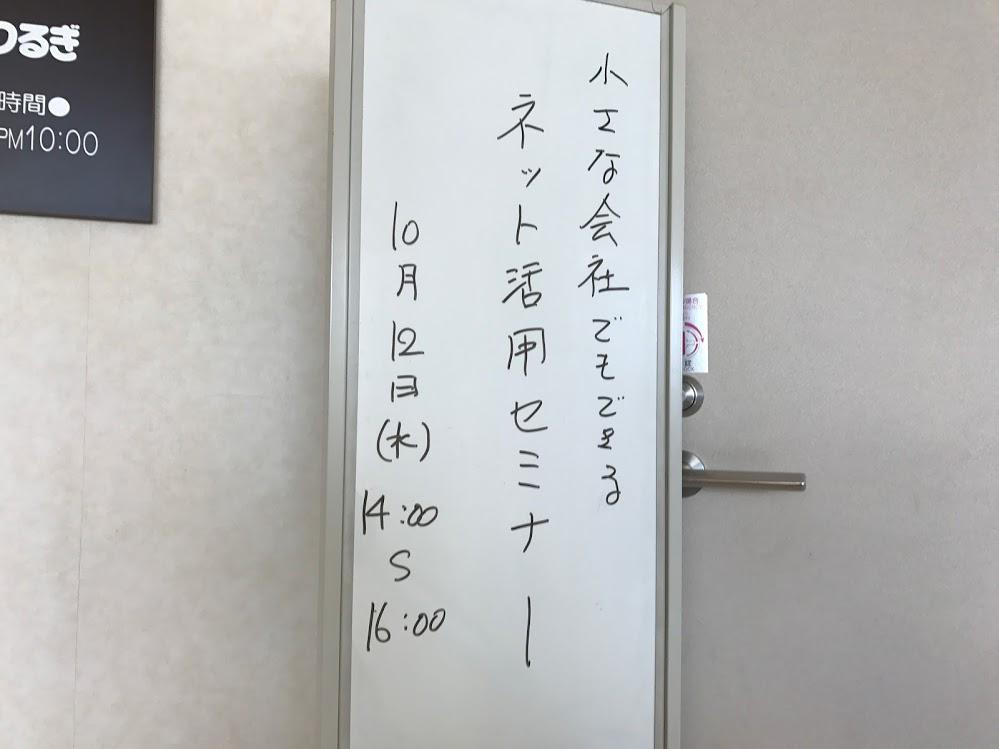 つるぎ
時間●
PM10:00
小さな会社でもできる
ネット活用セミナー
10月12日(水)14:00
～
16:00